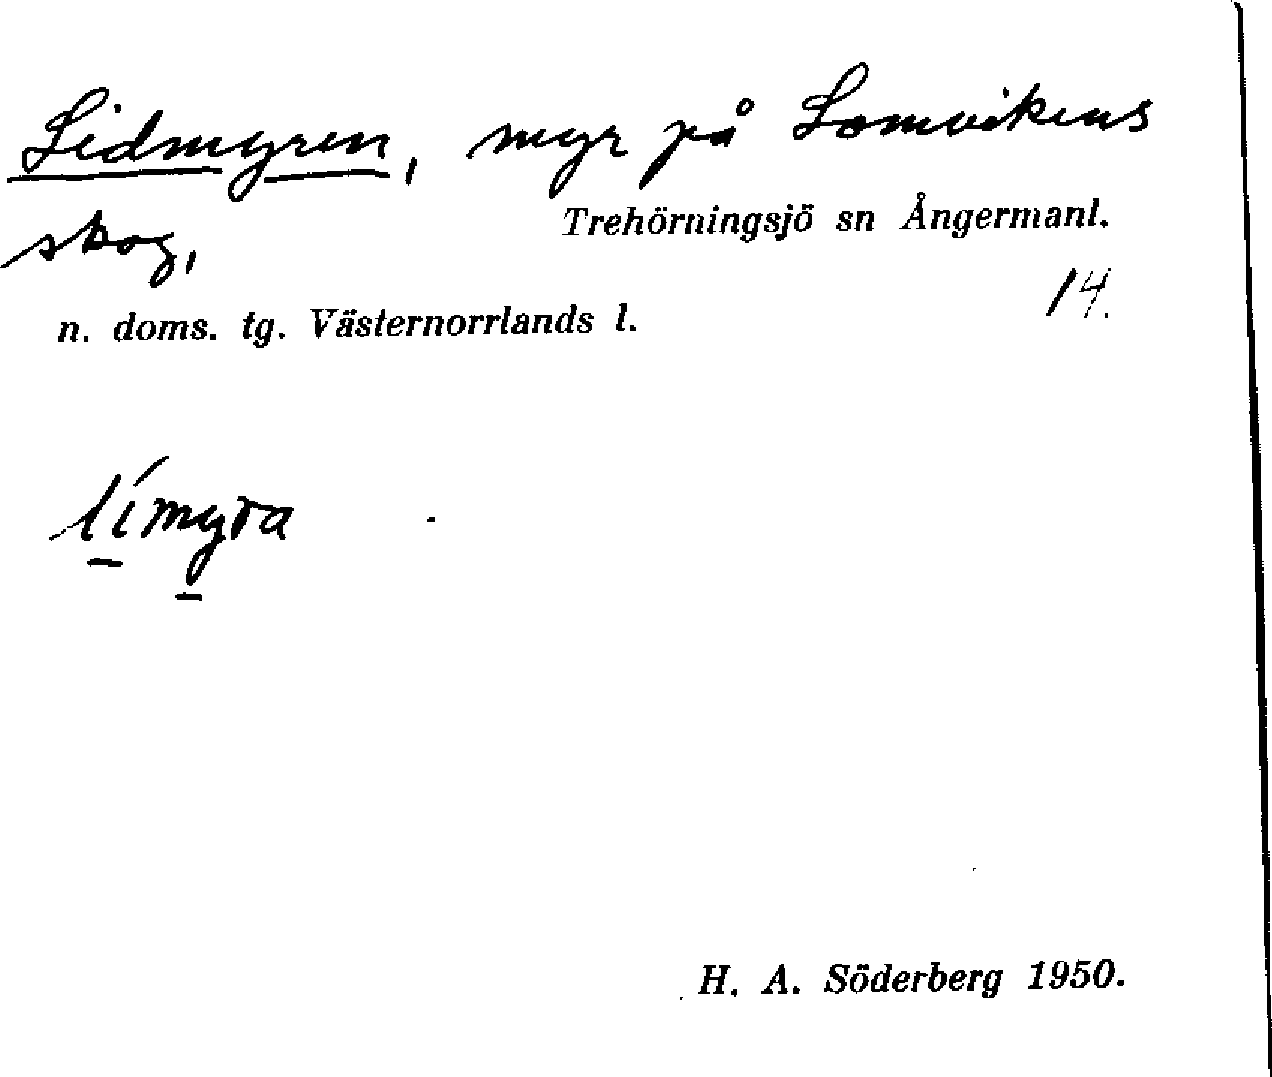 Lidmyren, myr på Lomvikens
Trehörningsjö sn Ångermanl.
skog,
14.
n. doms. tg. Västernorrlands l.
límyra
H. A. Söderberg 1950.